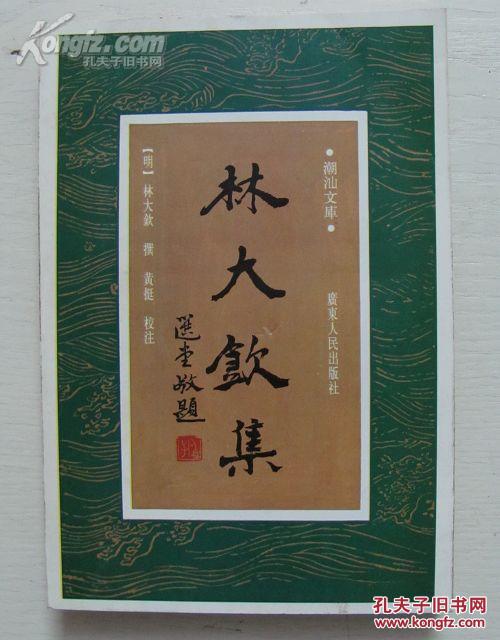 Kongfz.com
孔夫子旧书网
●潮汕文庫●
廣東人民出版社
林大欽集
選堂敬題
【明】林大欽 撰 黄挺 校注
孔夫子旧书网
www.kongfz.com